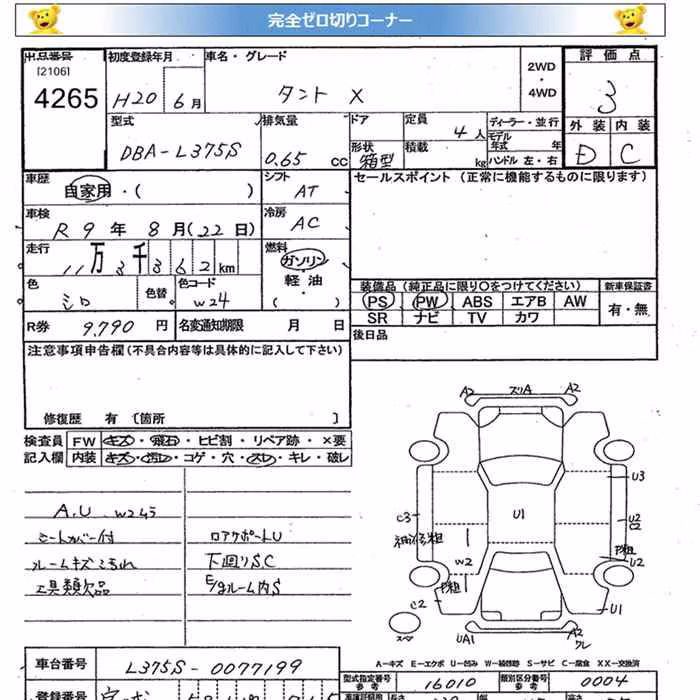 完全ゼロ切りコーナー
出品番号
[2106]
4265
初度登録年月
H20 6月
車名・グレード
タント X
2WD
・
4WD
評価点
3
外装 内装
D C
型式
DBA-L375S
排気量
0.65 cc
ドア
定員
4人
形状
箱型
積載
kg
ディーラー・並行
モデル
年式 年
ハンドル 左・右
車歴
自家用・( )
シフト
AT
セールスポイント (正常に機能するものに限ります)
車検
R 9 年 8 月(22 日)
冷房
AC
走行
11万3千362km
燃料
ガソリン
・
軽油
( )
色
シロ
色替
色コード
W24
装備品 (純正品に限り○をつけてください)
新車保証書
PS PW ABS エアB AW
SR ナビ TV カワ
有・無
R券 9,790 円
名変通知期限 月 日
後日品
注意事項申告欄(不具合内容等は具体的に記入して下さい)
修復歴 有 〔箇所 〕
検査員 FW キズ・飛石・ヒビ割・リペア跡・×要
記入欄 内装 キズ・汚レ・コゲ・穴・スレ・キレ・破レ
A.U W2あり
シートカバー付
ルームキズ汚れ
工具類欠品
ロアサポートU
下廻りSC
E/gルーム内S
A2 スリA A2
U3
C3
U1
U2
C2
W2
U2
C2
U1
UA1
A2
A-キズ E-エクボ U-凹み W-補修跡 S-サビ C-腐食 XX-交換済
車台番号
L375S-0077199
型式指定番号
参考
16010
類別区分番号
参考
0004
登録番号